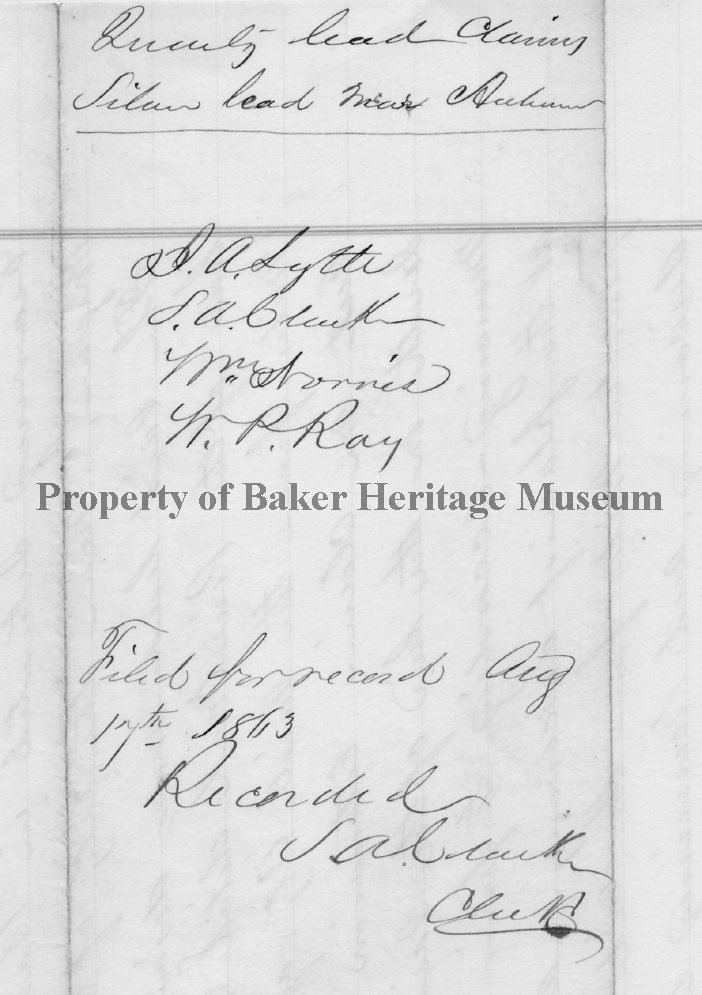 Quartz lead Claims
Silver lead near Auburn
J. A. Lytle
S. A. Clarke
Wm. Norris
W. P. Ray
Property of Baker Heritage Museum
Filed for record Aug
17th 1863
Recorded
S A. Clarke
Clerk